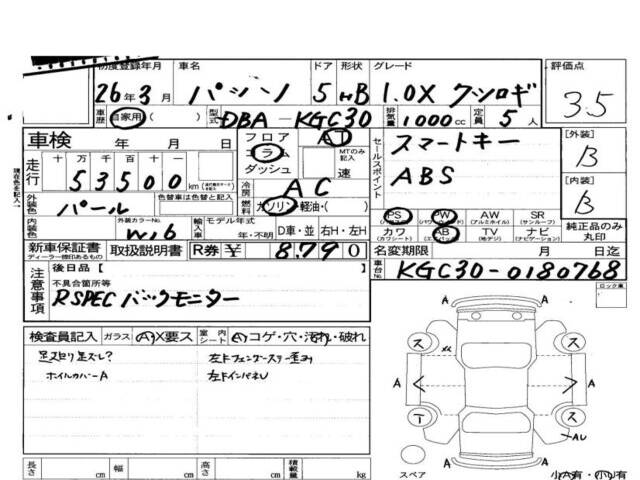 初度登録年月 車名 ドア 形状 グレード 評価点
26年3月 パッソ 5 HB 1.0X クツロギ 3.5
車歴 自家用 ( ) 型式 DBA-KGC30 排気量 1000cc 定員 5人
車検 年 月 日 フロア コラム ダッシュ AT MTのみ記入 速
セールスポイント スマートキー
ABS
[外装] B
[内装] B
走行 十万千百十 53500 km
冷房 AC
外装色 パール 色替車は色替前色を記入 燃料 ガソリン・軽油・( )
内装色 外装カラーNo. W16 輸入車 モデル年式 年・不明 D車・並 右H・左H
PS PW AW SR
(パワステ) (アルミホイル) (サンルーフ)
カワ AB TV ナビ
(カワシート) (エアバッグ) (地デジ) (ナビゲーション)
純正品のみ丸印
新車保証書 取扱説明書 R券 ¥ 8,790
ディーラー捺印あるもの
名変期限 月 日迄
車台No. KGC30-0180768
注意事項 後日品【 】
不具合箇所等
RSPEC バックモニター
検査員記入 ガラス A・X要ス 室内シート A・コゲ・穴・汚れ・破れ
ホイルカバーA
左FインパネU
ス ス
A A A
テ ス
AU
A
スペア 小A有・小U有
長さ cm 幅 cm 高さ cm 積載量 kg